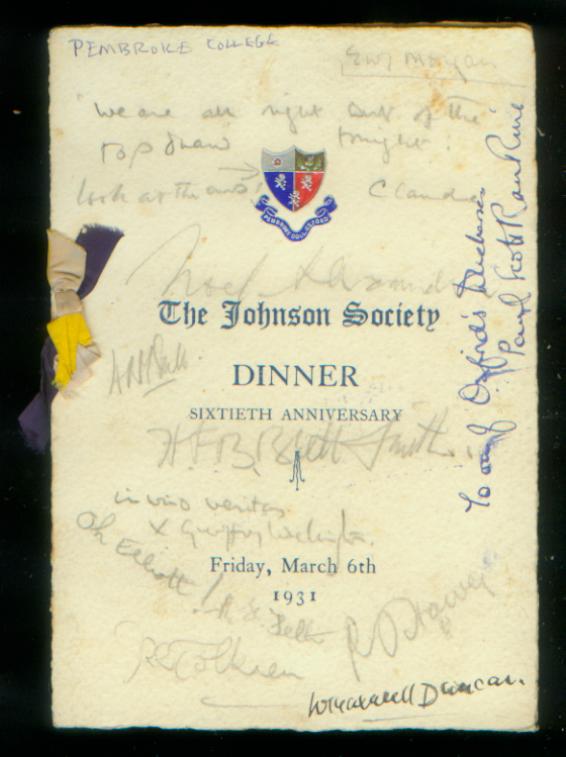 PEMBROKE COLLEGE
Morgan
"We are all right out of the
top draw tonight!
look at the
Claudie
PEMBROKE COLL. OXFORD
Noel
The Johnson Society
DINNER
SIXTIETH ANNIVERSARY
H.F.B. Brett Smith.
in vino veritas
X Geoffrey
Oh Elliott!
Friday, March 6th
1931
JRRTolkien
W Maxwell Duncan.
To one of Oxford's
Paul Scott Rankine